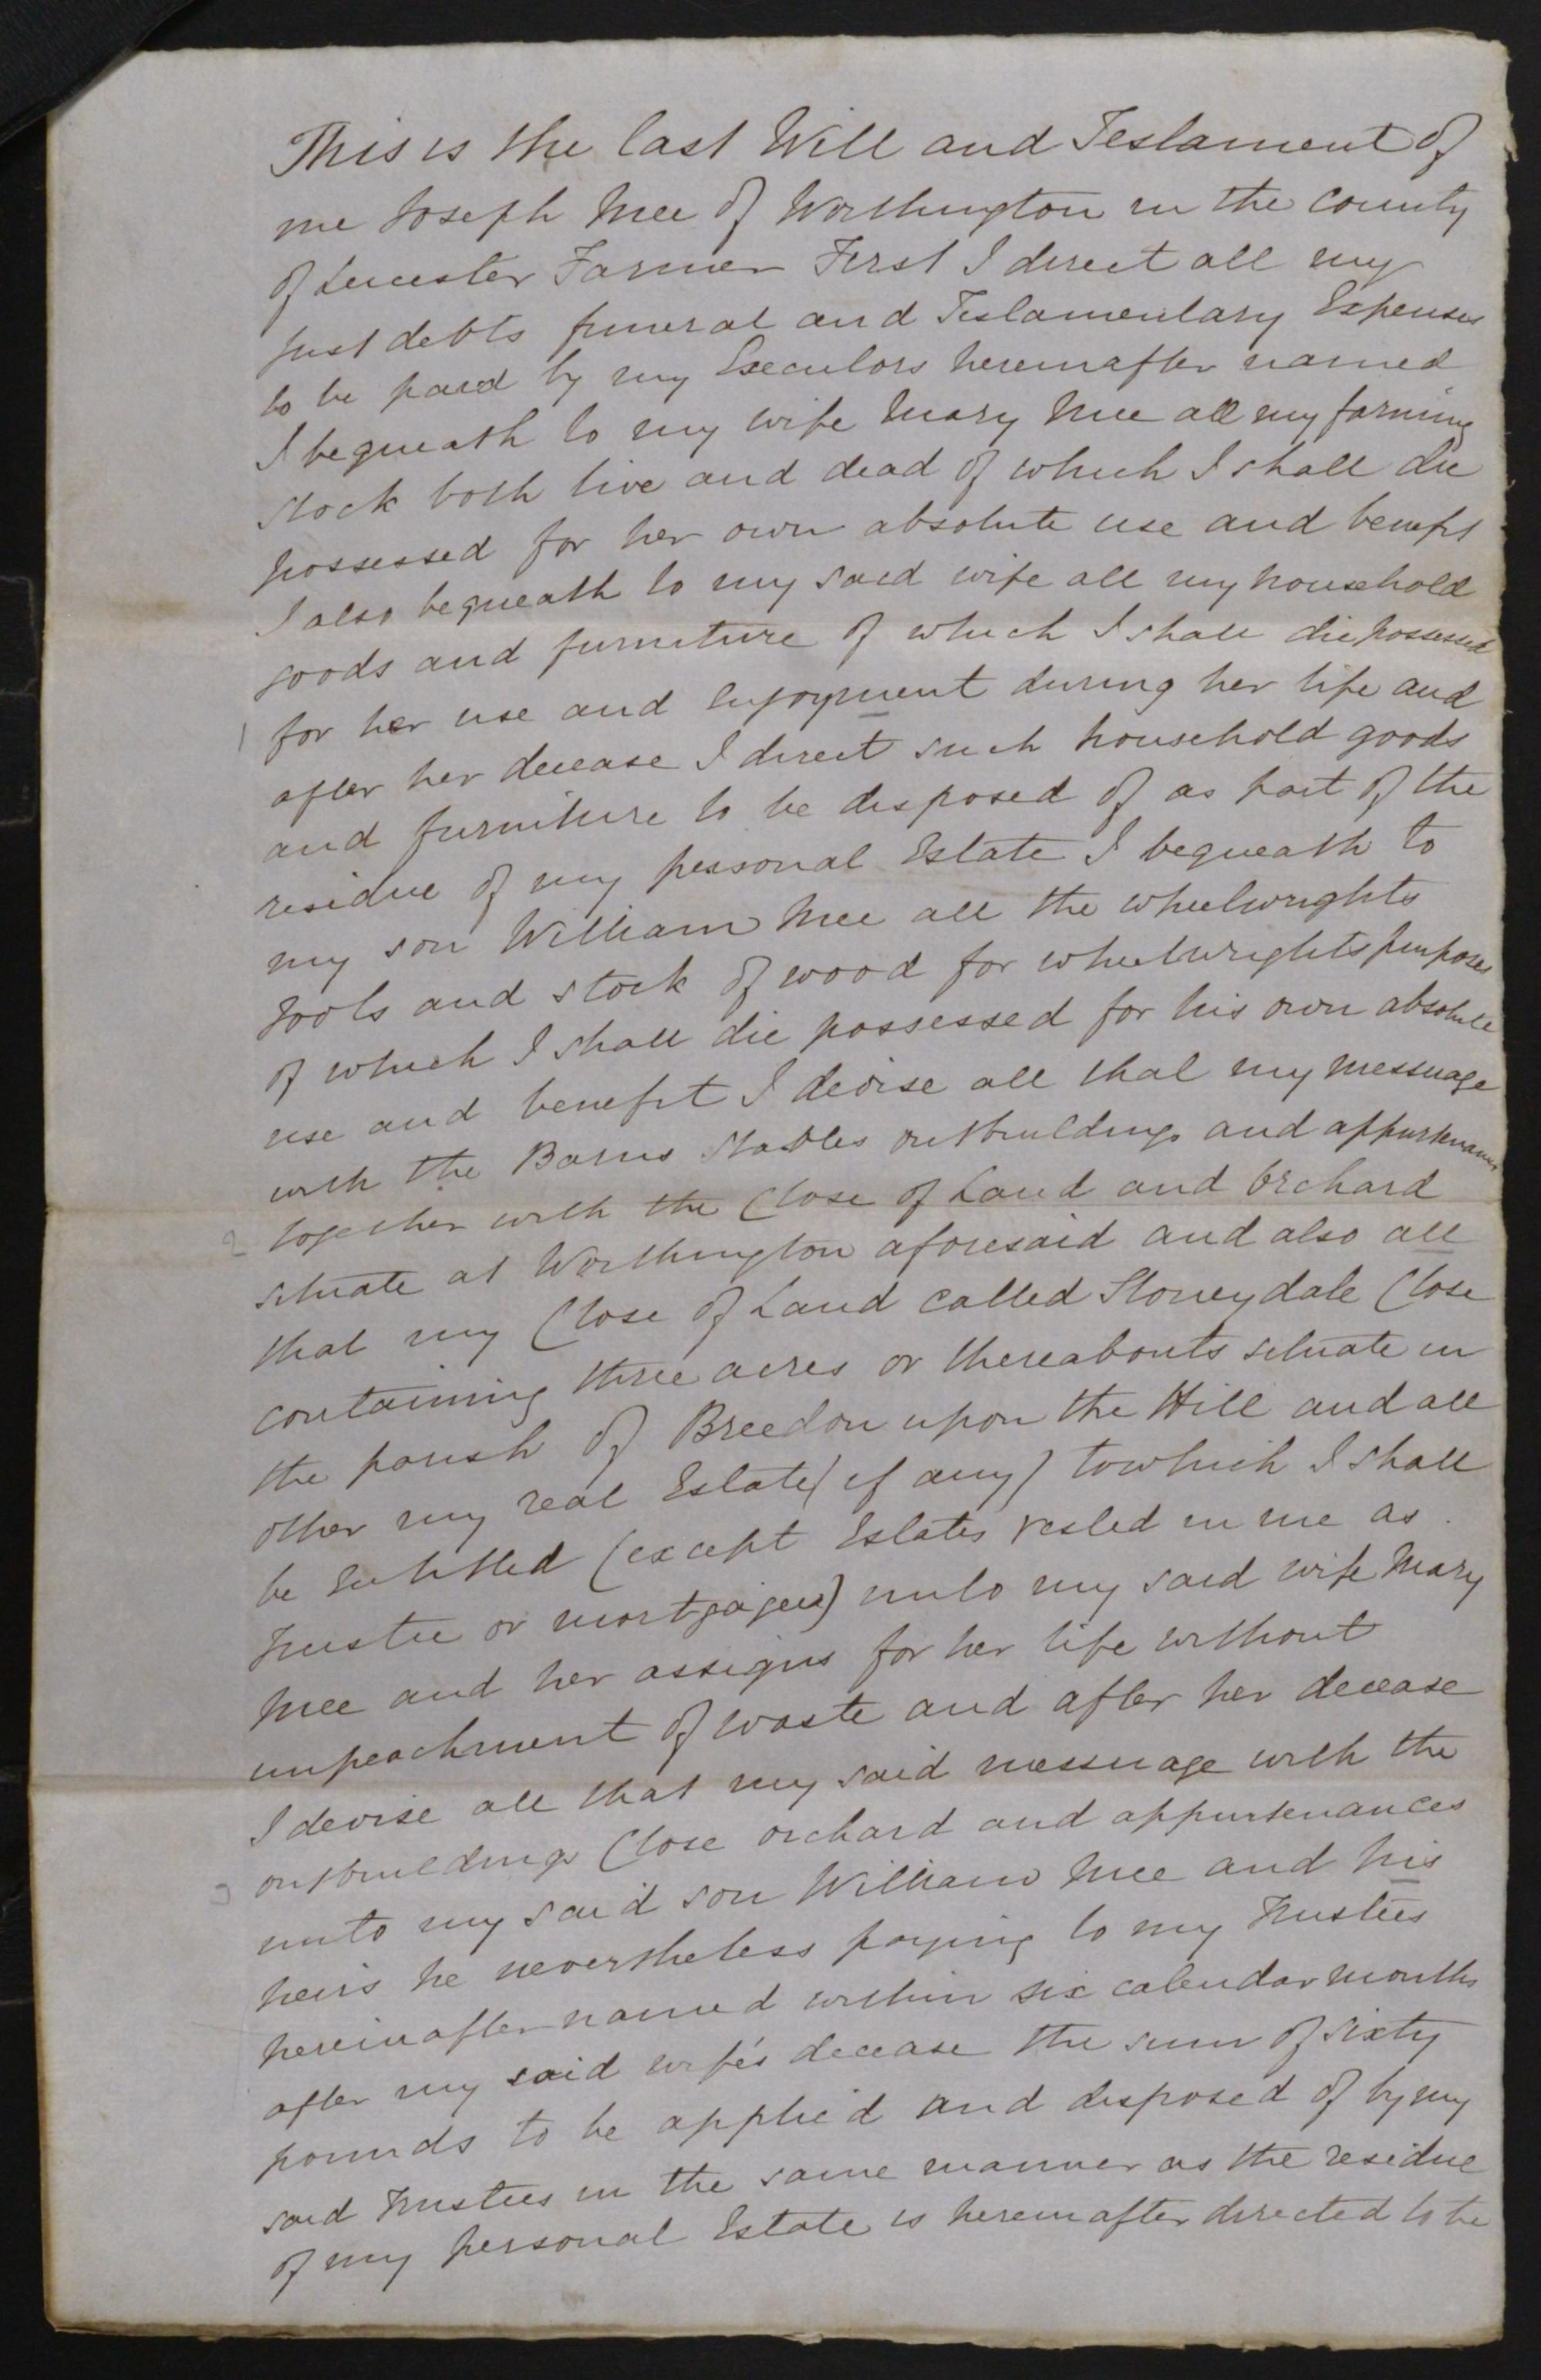 This is the last Will and Testament of
me Joseph Mee of Worthington in the County
of Leicester Farmer First I direct all my
just debts funeral and Testamentary Expenses
to be paid by my Executors hereinafter named
I bequeath to my wife Mary Mee all my farming
stock both live and dead of which I shall die
possessed for her own absolute use and benefit
I also bequeath to my said wife all my household
goods and furniture of which I shall die possessed
1 for her use and enjoyment during her life and
after her decease I direct such household goods
and furniture to be disposed of as part of the
residue of my personal Estate I bequeath to
my son William Mee all the wheelwrights
tools and stock of wood for wheelwrights purposes
of which I shall die possessed for his own absolute
use and benefit I devise all that my messuage
with the Barns Stables outbuildings and appurtenances
2 together with the Close of Land and Orchard
situate at Worthington aforesaid and also all
that my Close of Land called Stoneydale Close
containing three acres or thereabouts situate in
the parish of Breedon upon the Hill and all
other my real Estate (if any) to which I shall
be Entitled (except Estates vested in me as
trustee or mortgagee) unto my said wife Mary
Mee and her assigns for her life without
impeachment of waste and after her decease
I devise all that my said messuage with the
3 outbuildings Close orchard and appurtenances
unto my said son William Mee and his
heirs he nevertheless paying to my Trustees
hereinafter named within six calendar months
after my said wife's decease the sum of sixty
pounds to be applied and disposed of by my
said Trustees in the same manner as the residue
of my personal Estate is hereinafter directed to be